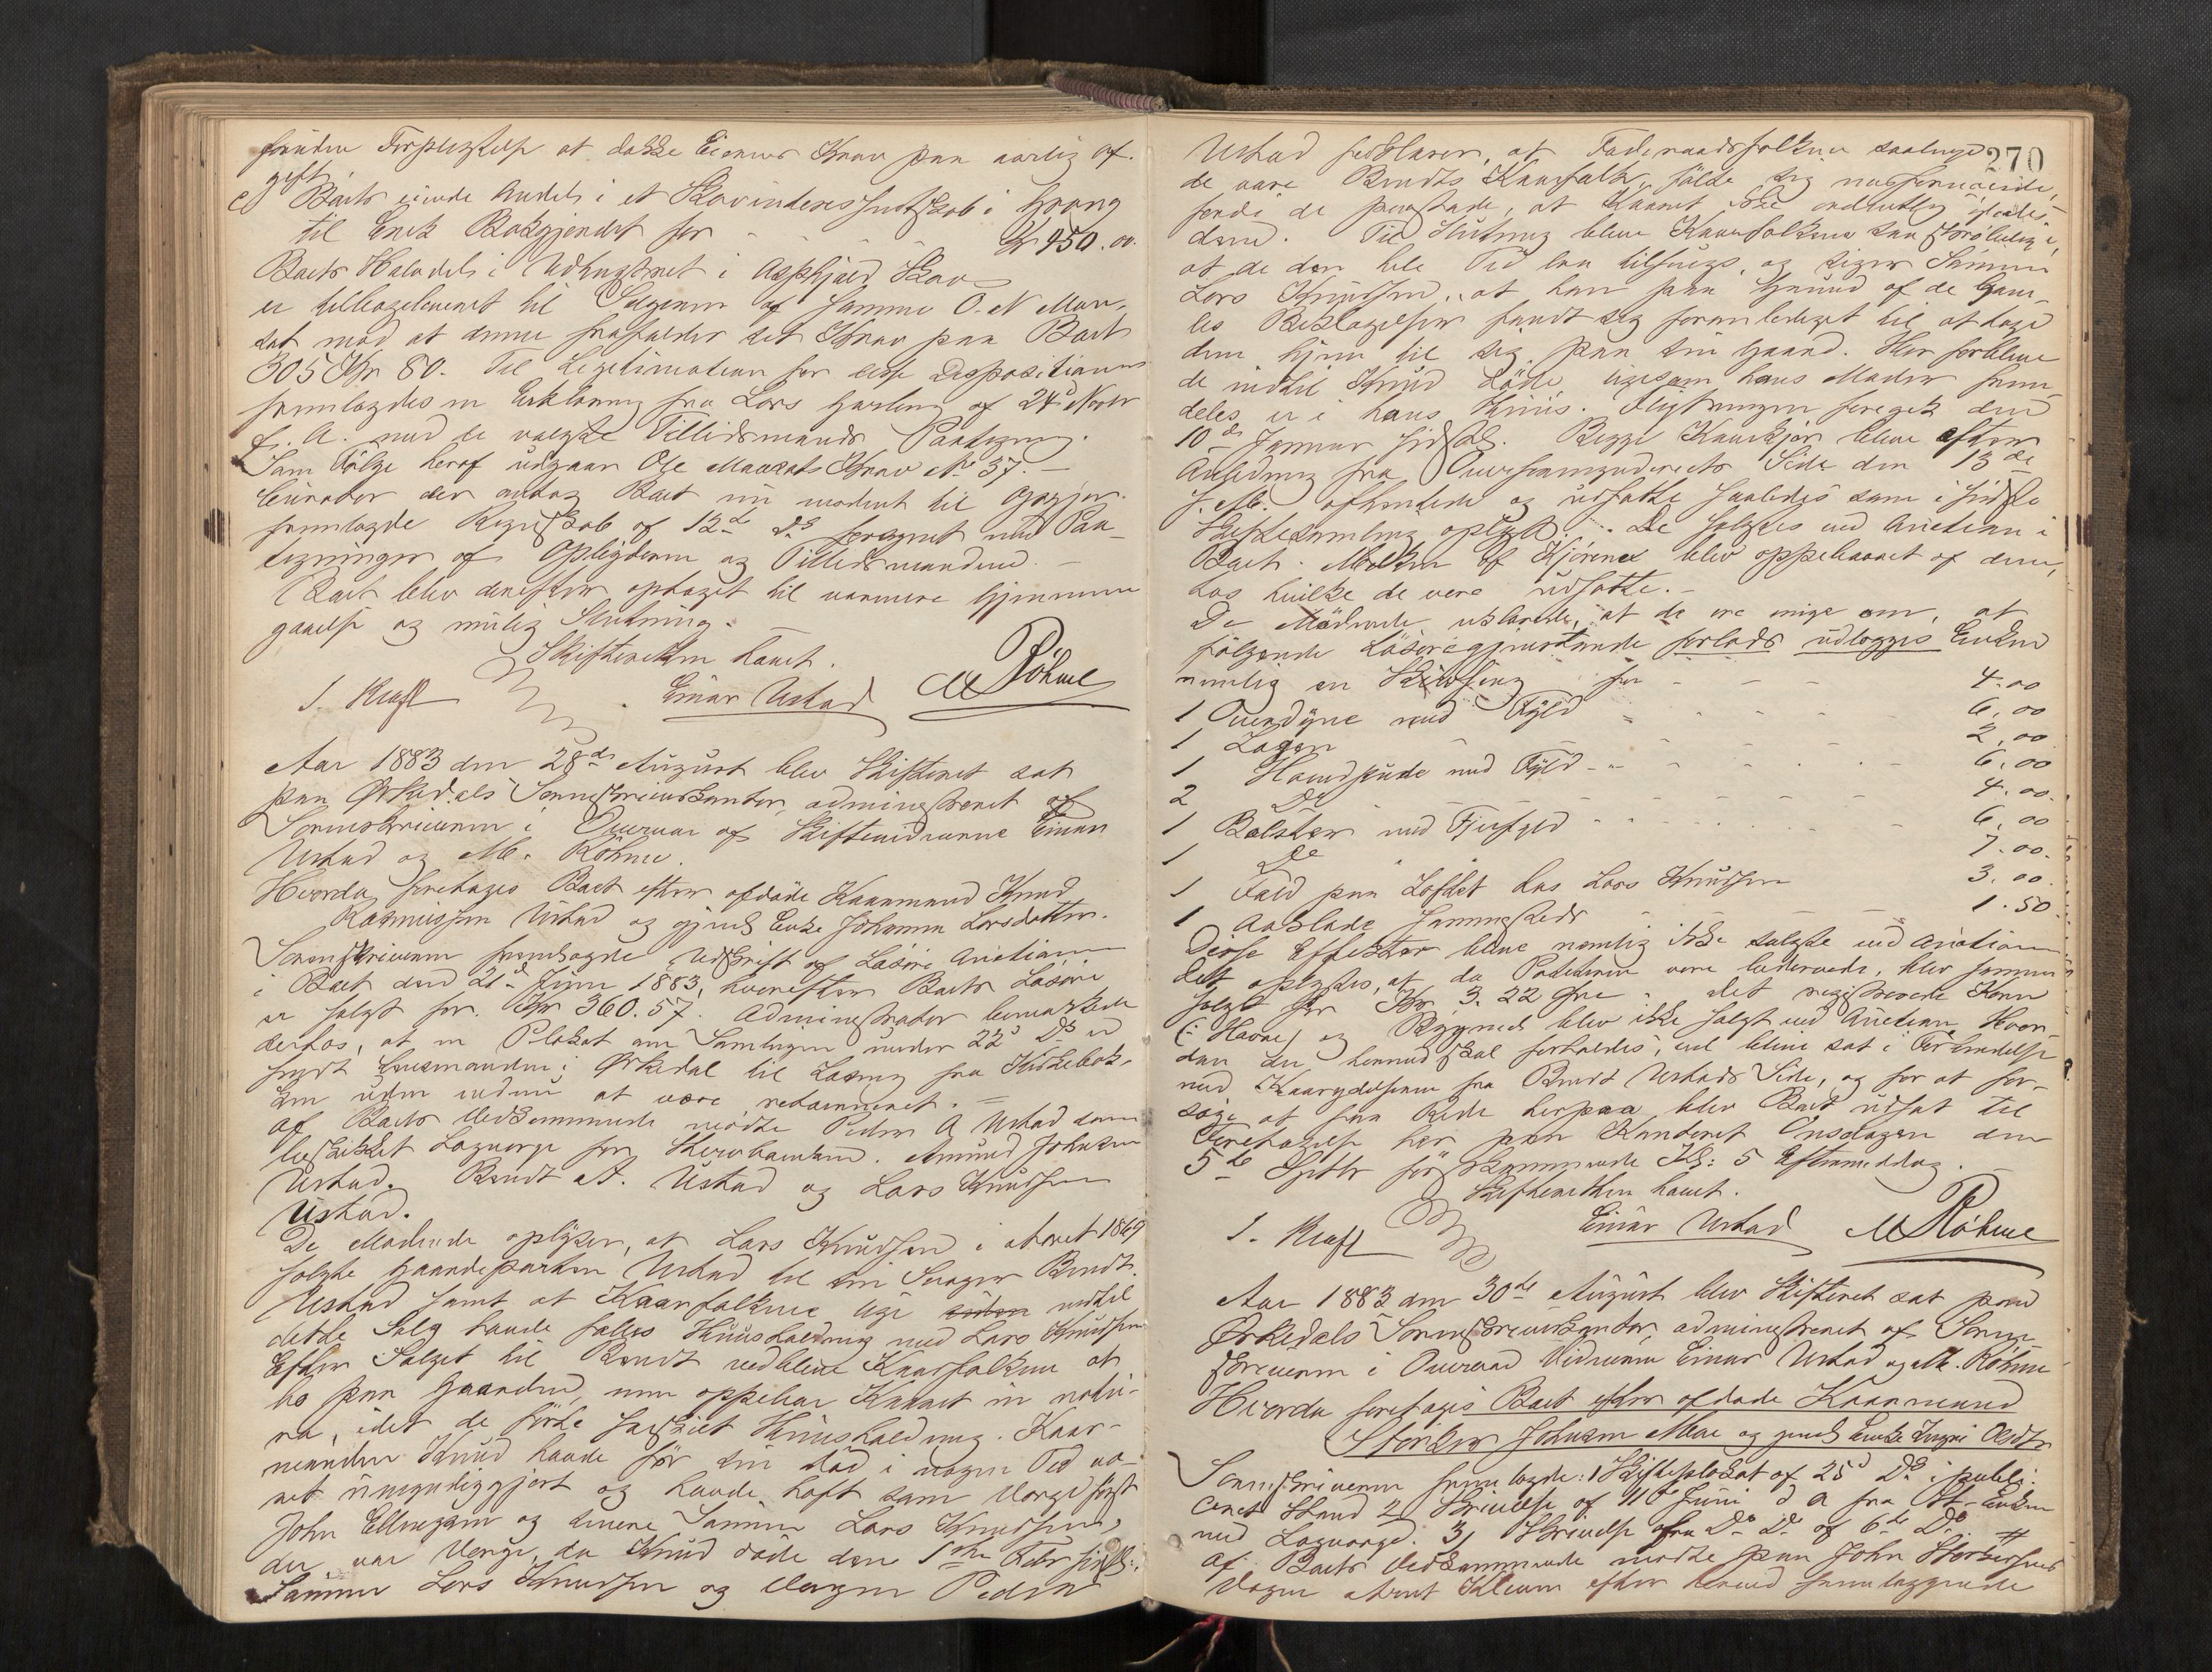 fornden Forpligtelse at dække Eierens Krav paa aarlig af-
gift.
c) Boets eiende Andel i et Skovindenessnotskab i Grong
til Erik Bakgjendet for - - - - Kr 450.00.
Boets Halvdel i Udhugstret i Aspkjæld Skov
er tilbageleveret til Sælgeren af samme O. N Mou-
sat mod at denne frafalder sit Krav paa Boet
305 Kr 80. Til Legitimation for disse Dispositioner
fremlagdes en Erklæring fra Lars Garberg af 24d Novbr
f. A. med de valgte Tillidsmænds Paategning.
Som Følge heraf udgaar Ole Mousats Krav No 37. —
Curator der antog Boet nu modent til Opgjør
fremlagde Regnskab af 12te Ds forsynet med Paa-
tegninger af Opligderen og Tillidsmændene. —
Boet blev derefter optaget til nærmere Gjennem-
gaaelse og mulig Slutning. —
Skifteretten hævet.
I. Kraft Einar Ustad M Røhme
Aar 1883 den 28de August blev Skifteret sat
paa Ørkedals Sorenskriverkontor, administreret af
Sorenskriveren i Overvær af Skiftevidnerne Einar
Ustad og M. Røhme.
Hvorda foretages Boet efter afdøde Kaarmand Knud
Rasmussen Ustad og gjenl. Enke Johanna Larsdatter.
Sorenskriveren fremlagde Udskrift af Løsøre Auction
i Boet den 21de Juni 1883, hvorefter Boets Løsøre
er solgt for Kr 360.57. Administrator bemærkede
derhos, at en Plakat om Samlingen under 22d Ds er
sendt Lensmanden i Ørkedal til Læsning fra Kirkebak-
ken uden endnu at være returneret. —
Af Boets Vedkommende mødte Peder A Ustad som
beskikket Lagværge for Stervboenken. Amund Johnsen
Ustad. Bendt A. Ustad og Lars Knudsen
Ustad.
De Mødende oplyser, at Lars Knudsen i Aaret 1869
solgte Gaardeparten Ustad til sin Svoger Bendt
Ustad samt at Kaarfolkene lige siden indtil
dette Salg havde fælles Huusholdning med Lars Knudsen
Efter Salget til Bendt vedbleve Kaarfolkene at
bo paa Gaarden, men oppebar Kaaret in natu-
ra, idet de førte særskilt Huusholdning. Kaar-
manden Knud havde før sin Død i nogen Tid væ-
ret umyndiggjort og havde haft som Værge først
John Ellingsen og senere Sønnen Lars Knudsen,
der var Værge, da Knud døde den 1ste Febr sidstl:
Sønnen Lars Knudsen og Værgen Peder
270
Ustad forklarer, at Føderaadsfolkene saalænge
de vare Bendts Kaarfolk, følte sig misfornøiede,
fordi de paastode, at Kaaret ikke ordentlig ydedes
dem. Til Slutning bleve Kaarfolkene saa skrøbelige,
at de den hele Tid laa tilsengs, og siger Sønnen
Lars Knudsen, at han paa Grund af de Gam-
les Beklagelser fandt sig foranlediget til at tage
dem hjem til sig paa sin Gaard. Her forbleve
de indtil Knud døde, ligesom hans Moder frem-
deles er i hans Huus. Flytningen foregik den
10de Januar sidstl. Begge Kaarkjør bleve efter
Anledning fra Overformynderiets Side den 13de
s. M. afhentede og udsatte saaledes som i sidste
Skiftesamling oplyst. De solgtes ved Auction i
Boet. Melken af Kjørene blev oppebaaret af dem,
hos hvilke de vare udsatte. —
De Mødende erklærede, at de ere enige om, at
følgende Løsøregjenstande forlods udlægges Enken
nemlig en for - - - 4.00
1 Overdyne med Fyld - - - 6.00
1 Lagen - - - 2.00
1 Hovedpude med Fyld - - - 6.00
2 Do - - - 4.00.
1 Bolster med Fjerfyld - - - 6.00
1 Do 7.00.
1 Fald paa Loftet hos Lars Knudsen 3.00.
1 Aaklæde sammesteds - - - 1.50.
Disse Effekter bleve nemlig ikke solgte ved Auctionen
Det oplystes, at da Poteterne vare bedærvede, blev samme
solgt for Kr 3. 22 Øre. Det registrerede Korn
(: Havre) og Bygmel blev ikke solgt ved Auction. Hvor-
dan der hermed skal forholdes, vil blive sat i Forbindelse
med Kaarydelserne fra Bendt Ustads Side, og for at for-
søge at faa Rede herpaa blev Boet udsat til
Foretagelse her paa Kontoret Onsdagen den
5te Septbr førstkommende Kl: 5 Eftermiddag.
Skifteretten hævet.
I. Kraft Einar Ustad M Røhme
Aar 1883 den 30te August blev Skifteret sat paa
Ørkedals Sorenskriverkontor, administreret af Soren-
skriveren i Overvær Vidnerne Einar Ustad og M. Røhme
Hvorda foretages Boet efter afdøde Kaarmand
Størker Johnsen Moe og gjenl. Enke Ingri Olsdtr
Sorenskriveren fremlagde: 1 Skifteplakat af 25d Ds i publi-
ceret Stand 2) Skrivelse af 11te Juni d A fra St-Enken
med Lagværge. 3) Skrivelse fra Do Do af 6te Ds.
Af Boets Vedkommende mødte paa John Størkersens
Vegne Arnt Kleven efter herved fremlæggende